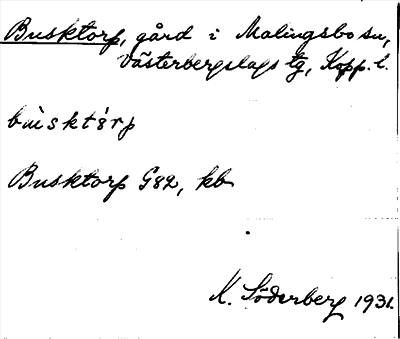 Busktorp, gård i Malingsbo sn,
Västerbergslags tg, Kopp. l.
bùsktórp
Busktorp G82, kb
K. Söderberg 1931.